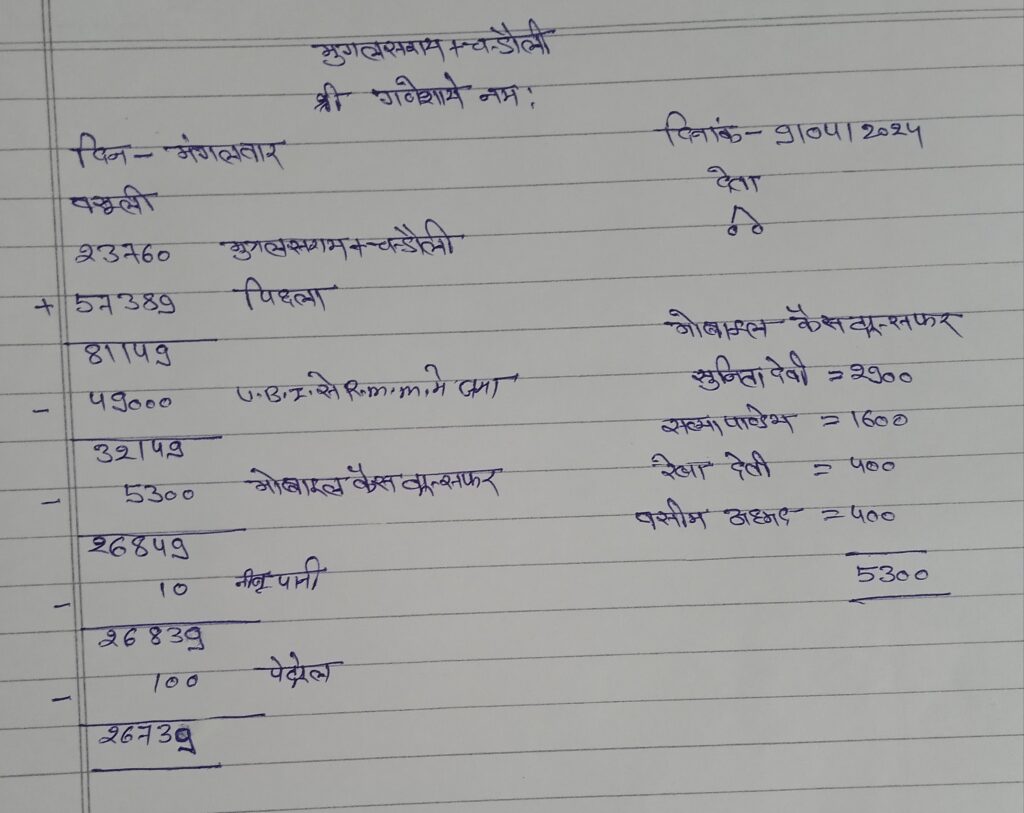 मुगलसराय + चन्डौली
श्री गणेशाये नम:
दिन - मंगलवार
दिनांक - 9/04/2024
वसूली
देता
23760 मुगलसराय + चन्डौली
+ 57389 पिछला
81149
- 49000 U.B.I. से R.m.m. मे जमा
32149
- 5300 मोबाइल कैस ट्रान्सफर
26849
- 10 नीबू पानी
26839
- 100 पेट्रोल
26739
मोबाइल कैस ट्रान्सफर
सुनिता देवी = 2900
पाण्डेय = 1600
रेखा देवी = 400
वसीम अहमद = 400
5300